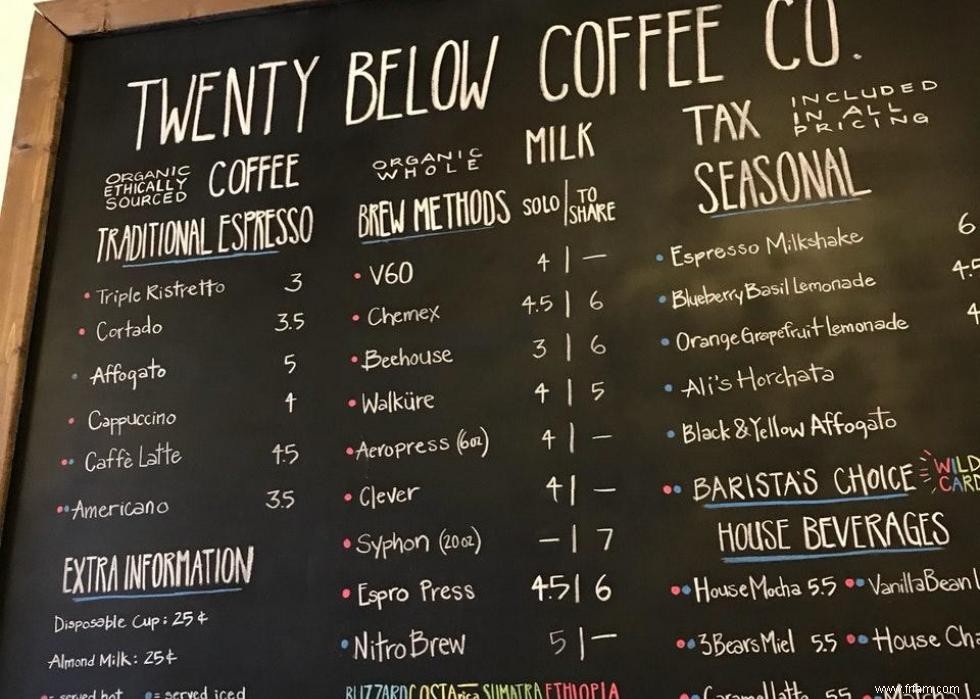 TWENTY BELOW COFFEE CO.
ORGANIC ETHICALLY SOURCED COFFEE
TRADITIONAL ESPRESSO
Triple Ristretto 3
Cortado 3.5
Affogato 5
Cappuccino 4
Caffè Latte 4.5
Americano 3.5
EXTRA INFORMATION
Disposable Cup: 25¢
Almond Milk: 25¢
= served hot = served iced
ORGANIC WHOLE MILK
BREW METHODS SOLO | TO SHARE
V60 4 | —
Chemex 4.5 | 6
Beehouse 3 | 6
Walküre 4 | 5
Aeropress (6oz) 4 | —
Clever 4 | —
Syphon (20oz) — | 7
Espro Press 4.5 | 6
Nitro Brew 5 | —
BLIZZARD COSTA rica SUMATRA ETHIOPIA
TAX INCLUDED IN ALL PRICING
SEASONAL
Espresso Milkshake 6
Blueberry Basil Lemonade 4.5
Orange Grapefruit Lemonade 4
Ali's Horchata
Black & Yellow Affogato
BARISTA'S CHOICE WILD CARD
HOUSE BEVERAGES
House Mocha 5.5 Vanilla Bean
3 Bears Miel 5.5 House Cha
Caramel Latte 5.5
www.fnam.com